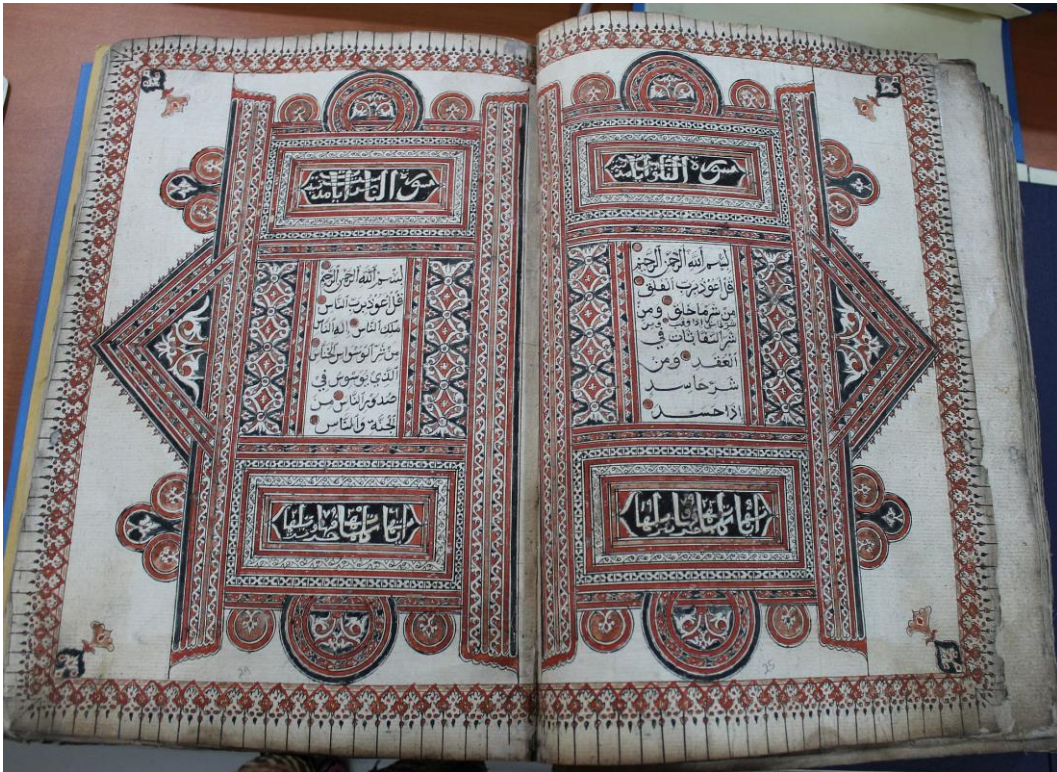 سورة
بسم الله الرحمن الرحيم
قل اعوذ برب الفلق
من شر ما خلق ومن
شر غاسق اذا وقب ومن
شر النفاثات في
العقد ومن
شر حاسد
اذا حسد
25
سورة الناس
بسم الله الرحمن الرحيم
قل اعوذ برب الناس
ملك الناس اله الناس
من شر الوسواس الخناس
الذي يوسوس في
صدور الناس من
الجنة والناس
24